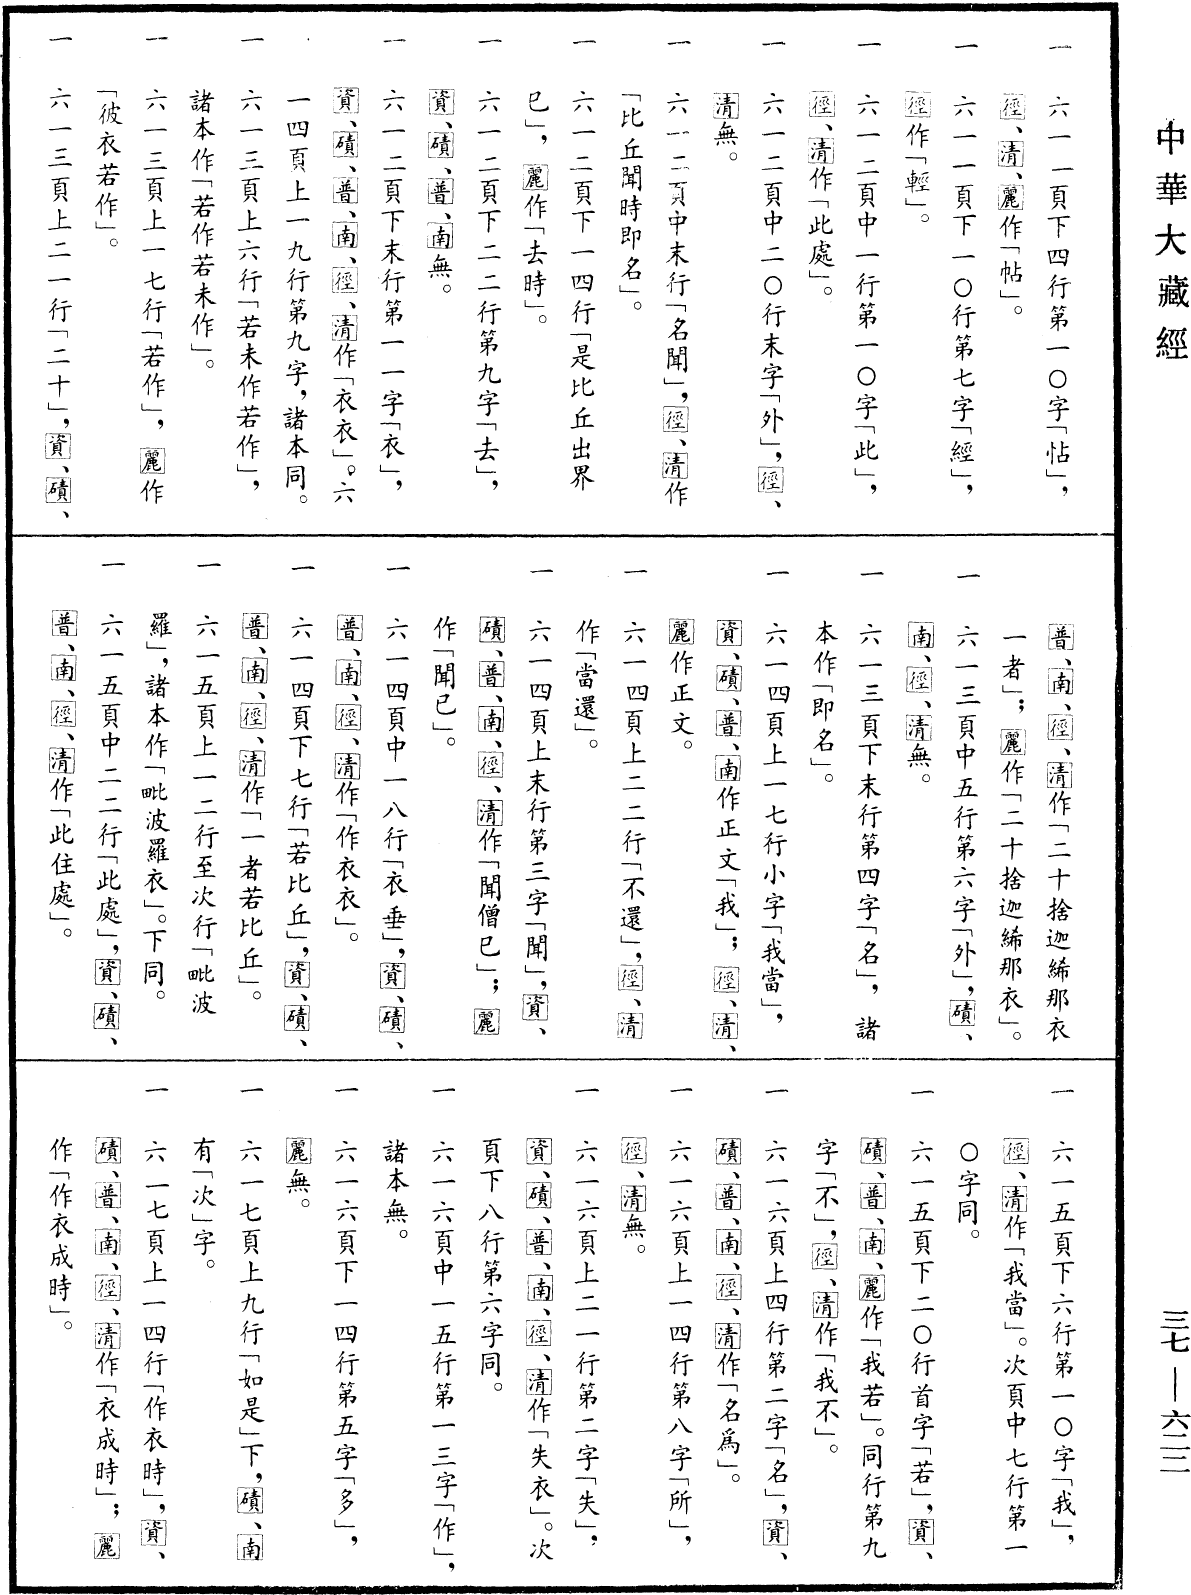 中華大藏經
一　六一一頁下四行第一〇字「怗」，
徑、清、麗作「帖」。
一　六一一頁下一〇行第七字「經」，
徑作「輕」。
一　六一二頁中一行第一〇字「此」，
徑、清作「此處」。
一　六一二頁中二〇行末字「外」，徑、
清無。
一　六一二頁中末行「名聞」，徑、清作
「比丘聞時即名」。
一　六一二頁下一四行「是比丘出界
已」，麗作「去時」。
一　六一二頁下二二行第九字「去」，
資、磧、普、南無。
一　六一二頁下末行第一一字「衣」，
資、磧、普、南、徑、清作「衣衣」。六
一四頁上一九行第九字，諸本同。
一　六一三頁上六行「若未作若作」，
諸本作「若作若未作」。
一　六一三頁上一七行「若作」，麗作
「彼衣若作」。
一　六一三頁上二一行「二十」，資、磧、
普、南、徑、清作「二十捨迦絺那衣
一者」；麗作「二十捨迦絺那衣」。
一　六一三頁中五行第六字「外」，磧、
南、徑、清無。
一　六一三頁下末行第四字「名」，諸
本作「即名」。
一　六一四頁上一七行小字「我當」，
資、磧、普、南作正文「我」；徑、清、
麗作正文。
一　六一四頁上二二行「不還」，徑、清
作「當還」。
一　六一四頁上末行第三字「聞」，資、
磧、普、南、徑、清作「聞僧已」；麗
作「聞已」。
一　六一四頁中一八行「衣垂」，資、磧、
普、南、徑、清作「作衣衣」。
一　六一四頁下七行「若比丘」，資、磧、
普、南、徑、清作「一者若比丘」。
一　六一五頁上一二行至次行「毗波
羅」，諸本作「毗波羅衣」。下同。
一　六一五頁中二二行「此處」，資、磧、
普、南、徑、清作「此住處」。
一　六一五頁下六行第一〇字「我」，
徑、清作「我當」。次頁中七行第一
〇字同。
一　六一五頁下二〇行首字「若」，資、
磧、普、南、麗作「我若」。同行第九
字「不」，徑、清作「我不」。
一　六一六頁上四行第二字「名」，資、
磧、普、南、徑、清作「名爲」。
一　六一六頁上一四行第八字「所」，
徑、清無。
一　六一六頁上二一行第二字「失」，
資、磧、普、南、徑、清作「失衣」。次
頁下八行第六字同。
一　六一六頁中一五行第一三字「作」，
諸本無。
一　六一六頁下一四行第五字「多」，
麗無。
一　六一七頁上九行「如是」下，磧、南
有「次」字。
一　六一七頁上一四行「作衣時」，資、
磧、普、南、徑、清作「衣成時」；麗
作「作衣成時」。
三七—六二二